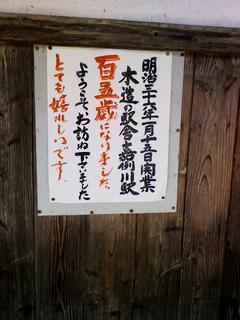 明治三十六年一月十五日開業
木造の駅舎嘉例川駅
百五歳になりました
ようこそお訪ね下さいました
とても嬉しいです